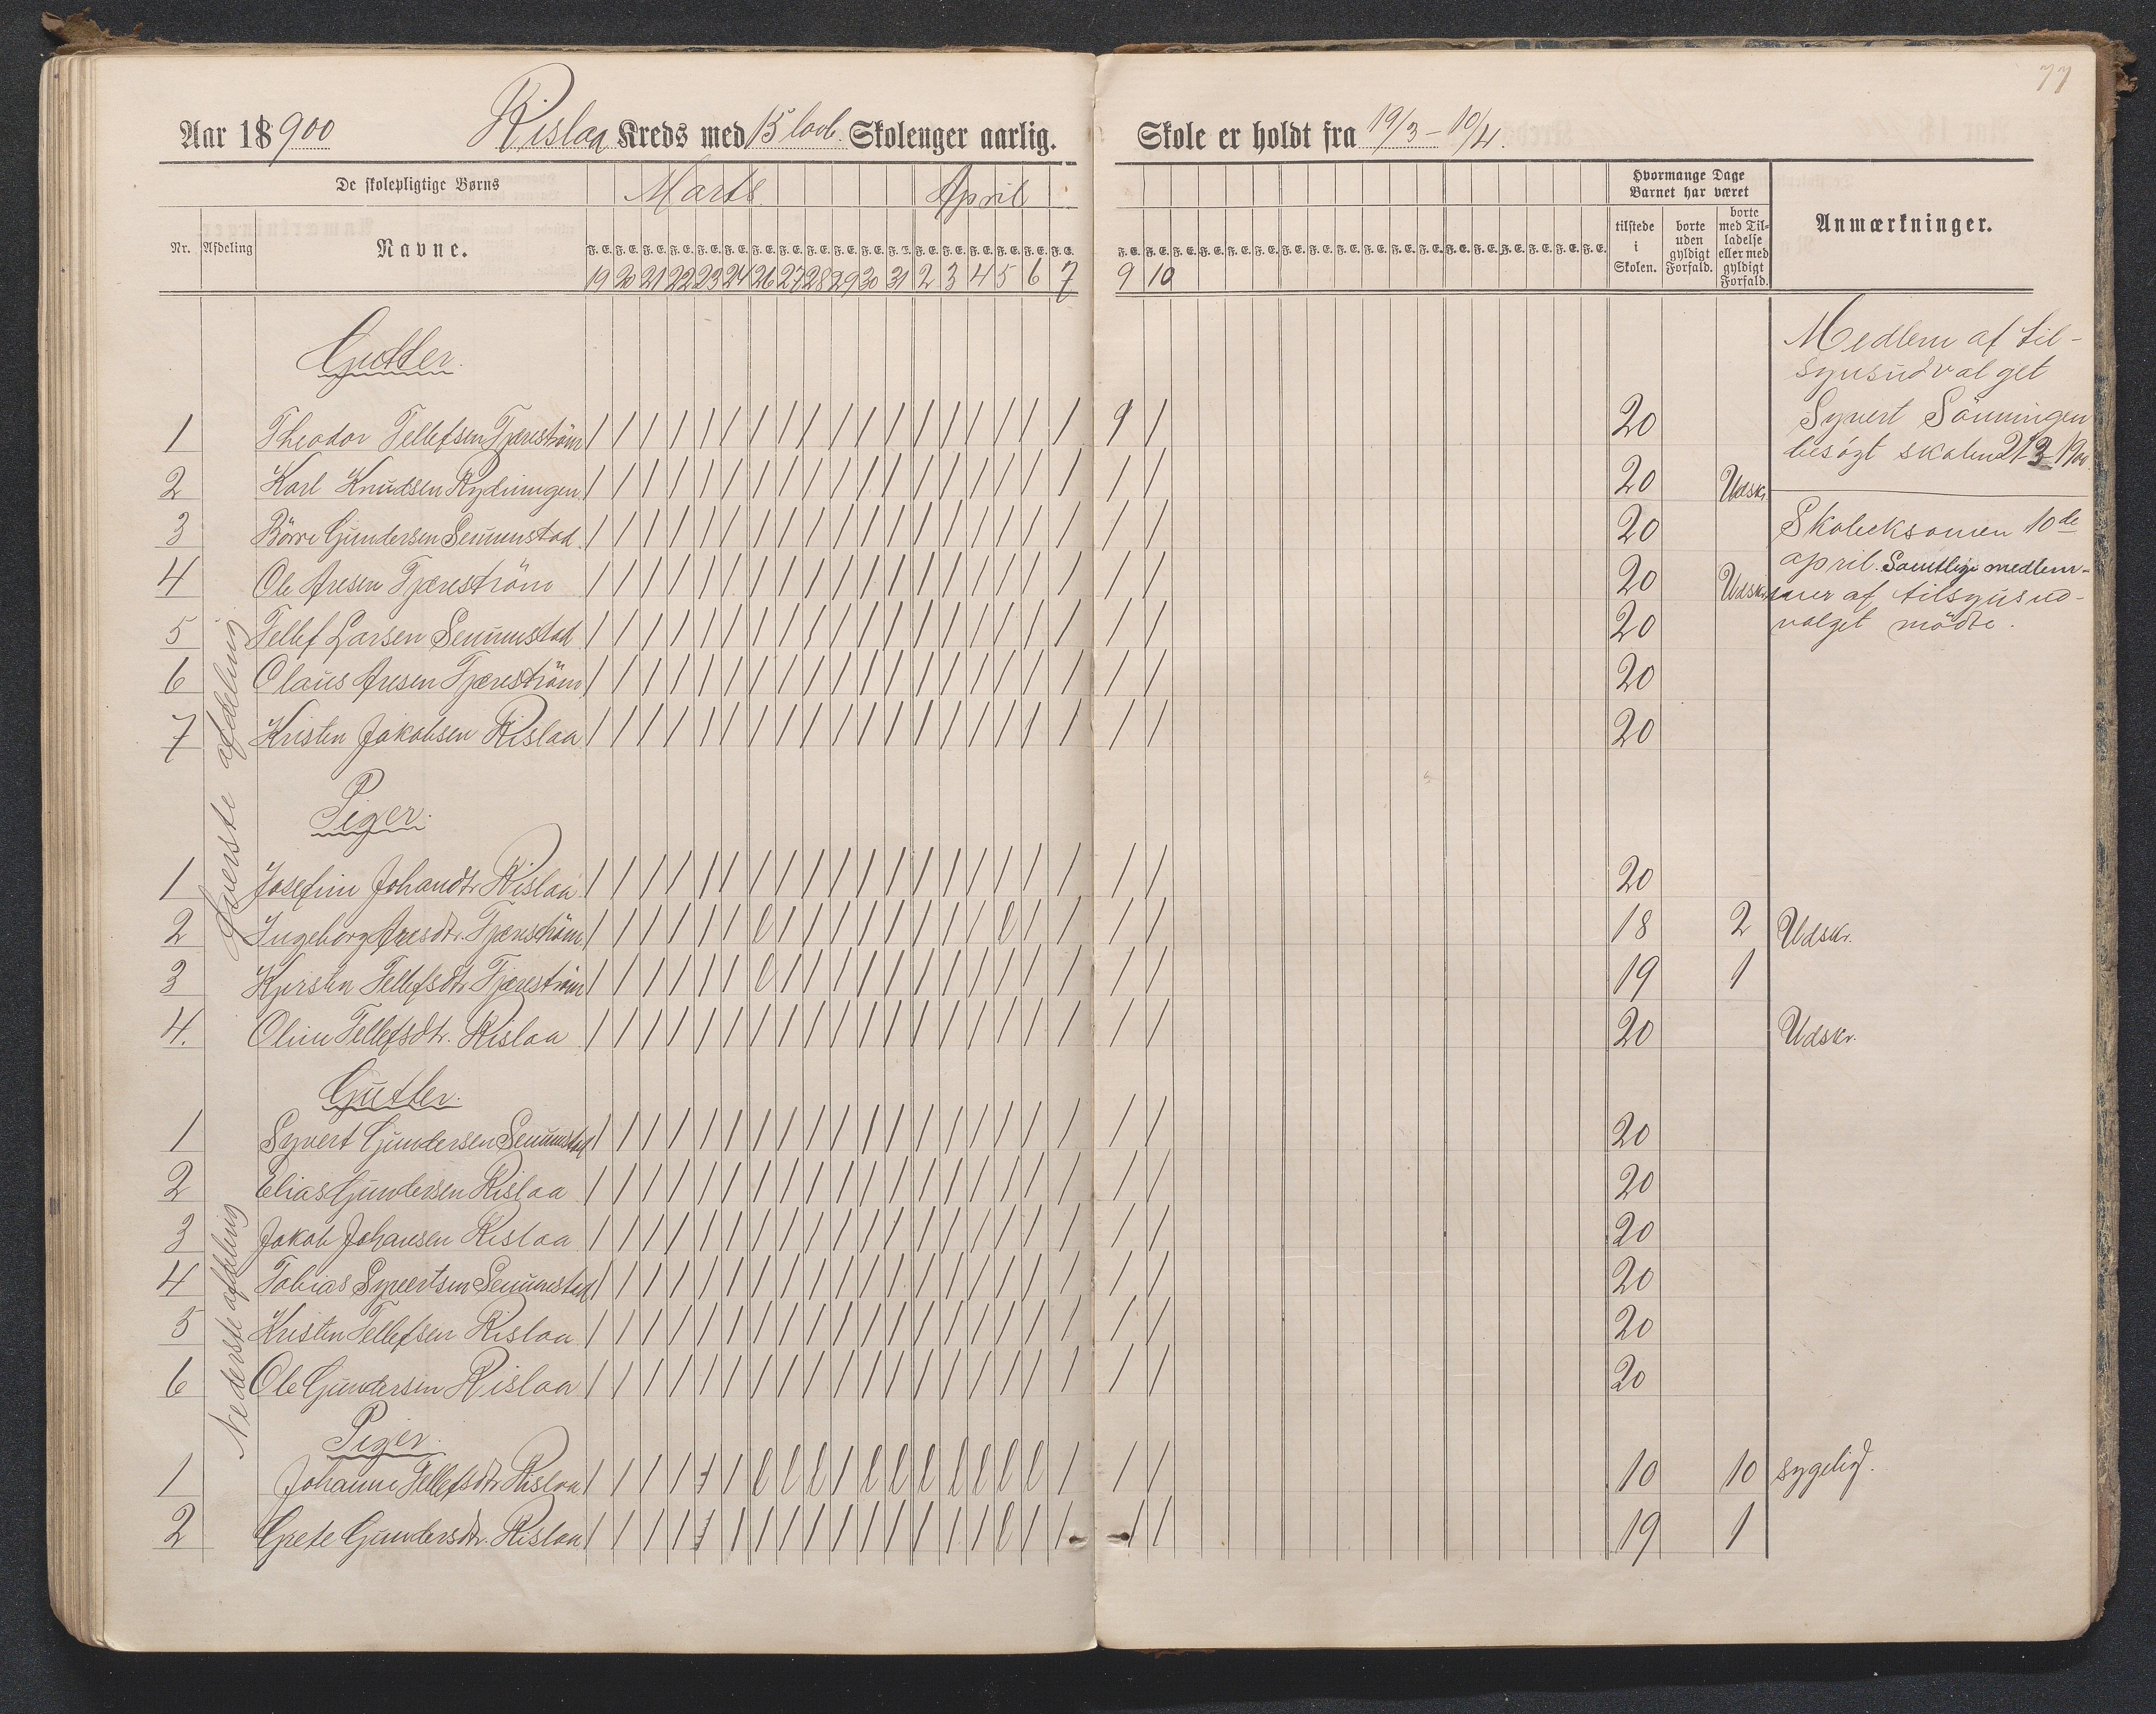 77
Aar 18900 Rislaa Kreds med 15 lovb. Skolenger aarlig. Skole er holdt fra 19/3 - 10/4.
De skolepligtige Børns Marts April Hvormange Dage Barnet har været
Nr. Afdeling Navne. F. E. F. E. F. E. F. E. F. E. F. E. F. E. F. E. F. E. F. E. F. E. F. E. F. E. F. E. F. E. F. E. F. E. F. E. tilstede i Skolen. borte uden gyldigt Forfald. borte med Tilladelse eller med gyldigt Forfald. Anmærkninger.
19 20 21 22 23 24 26 27 28 29 30 31 2 3 4 5 6 7 9 10
Medlem af til-
synsudvalget
Syvert Sönningen
besögt skolen 21-3-1900.
Skoleeksamen 10de
april. Samtlige medlem-
mer af tilsynsud-
valget mödte.
Øverste afdeling
Gutter.
1 Theodor Tellefsen Fjæreström / / / / / / / / / / / / / / / / / / / / 20
2 Karl Knudsen Rydningen / / / / / / / / / / / / / / / / / / / / 20 Udskr.
3 Börre Gundersen Senumstad / / / / / / / / / / / / / / / / / / / / 20
4 Ole Aresen Fjæreström / / / / / / / / / / / / / / / / / / / / 20 Udskr.
5 Tellef Larsen Senumstad / / / / / / / / / / / / / / / / / / / / 20
6 Olaus Aresen Fjæreström / / / / / / / / / / / / / / / / / / / / 20
7 Kristen Jakobsen Rislaa / / / / / / / / / / / / / / / / / / / / 20
Piger.
1 Josefine Johandtr. Rislaa / / / / / / / / / / / / / / / / / / / / 20
2 Ingeborg Aresdtr. Fjæreström / / / / / / l / / / / / / / / l / / / / 18 2 Udskr.
3 Kjersten Tellefsdtr. Fjæreström / / / / / / l / / / / / / / / / / / / / 19 1
4. Oline Tellefsdtr. Rislaa / / / / / / / / / / / / / / / / / / / / 20 Udskr.
Nederste afdeling
Gutter.
1 Syvert Gundersen Senumstad / / / / / / / / / / / / / / / / / / / / 20
2 Elias Gundersen Rislaa / / / / / / / / / / / / / / / / / / / / 20
3 Jakob Johansen Rislaa / / / / / / / / / / / / / / / / / / / / 20
4 Tobias Syvertsen Senumstad / / / / / / / / / / / / / / / / / / / / 20
5 Kristen Tellefsen Rislaa / / / / / / / / / / / / / / / / / / / / 20
6 Ole Gundersen Rislaa / / / / / / / / / / / / / / / / / / / / 20
Piger.
1 Johanne Tellefsdtr. Rislaa / / / / / / l l l / l l l l l l l / / / 10 10 sygelig.
2 Grete Gundersdtr. Rislaa / / / / / / / / / / / / / / / l / / / / 19 1